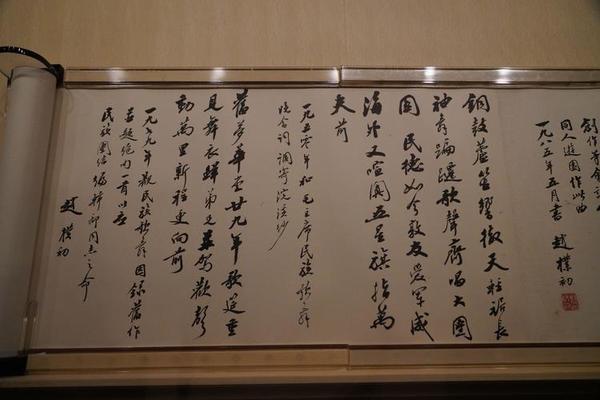 創作
同人遊園作此曲
一九八五年五月書 趙樸初
銅鼓蘆笙徹天裙長
袖舞蹁躚歌聲齊唱大團
圓民德如今敦友愛軍威
海外又喧闐五星旗指萬
夫前
一九五零年和毛主席民族歌舞
晚會詞調寄浣溪沙
舊夢華胥廿九年歌筵重
見舞衣弟兄並駕歡聲
動萬里新程更向前
一九七九年觀民族歌舞因錄舊作
並題絕句一首以應
民族團結編輯部同志之命
趙樸初